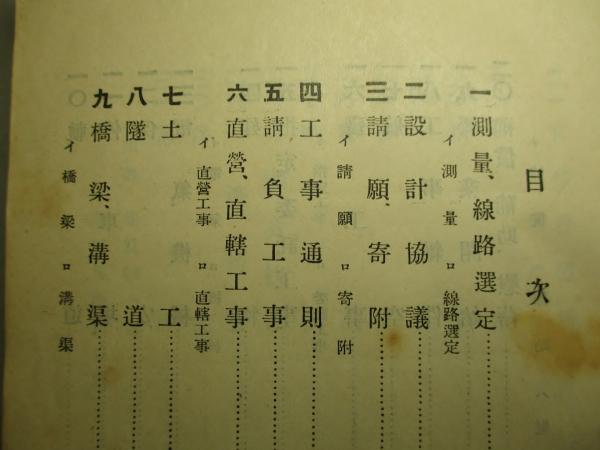 目次
一 測量、線路選定
イ 測量 ロ 線路選定
二 設計協議
三 請願、寄附
イ 請願 ロ 寄附
四 工事通則
五 請負工事
六 直營、直轄工事
イ 直營工事 ロ 直轄工事
七 土工
八 隧道
九 橋梁、溝渠
イ 橋梁 ロ 溝渠